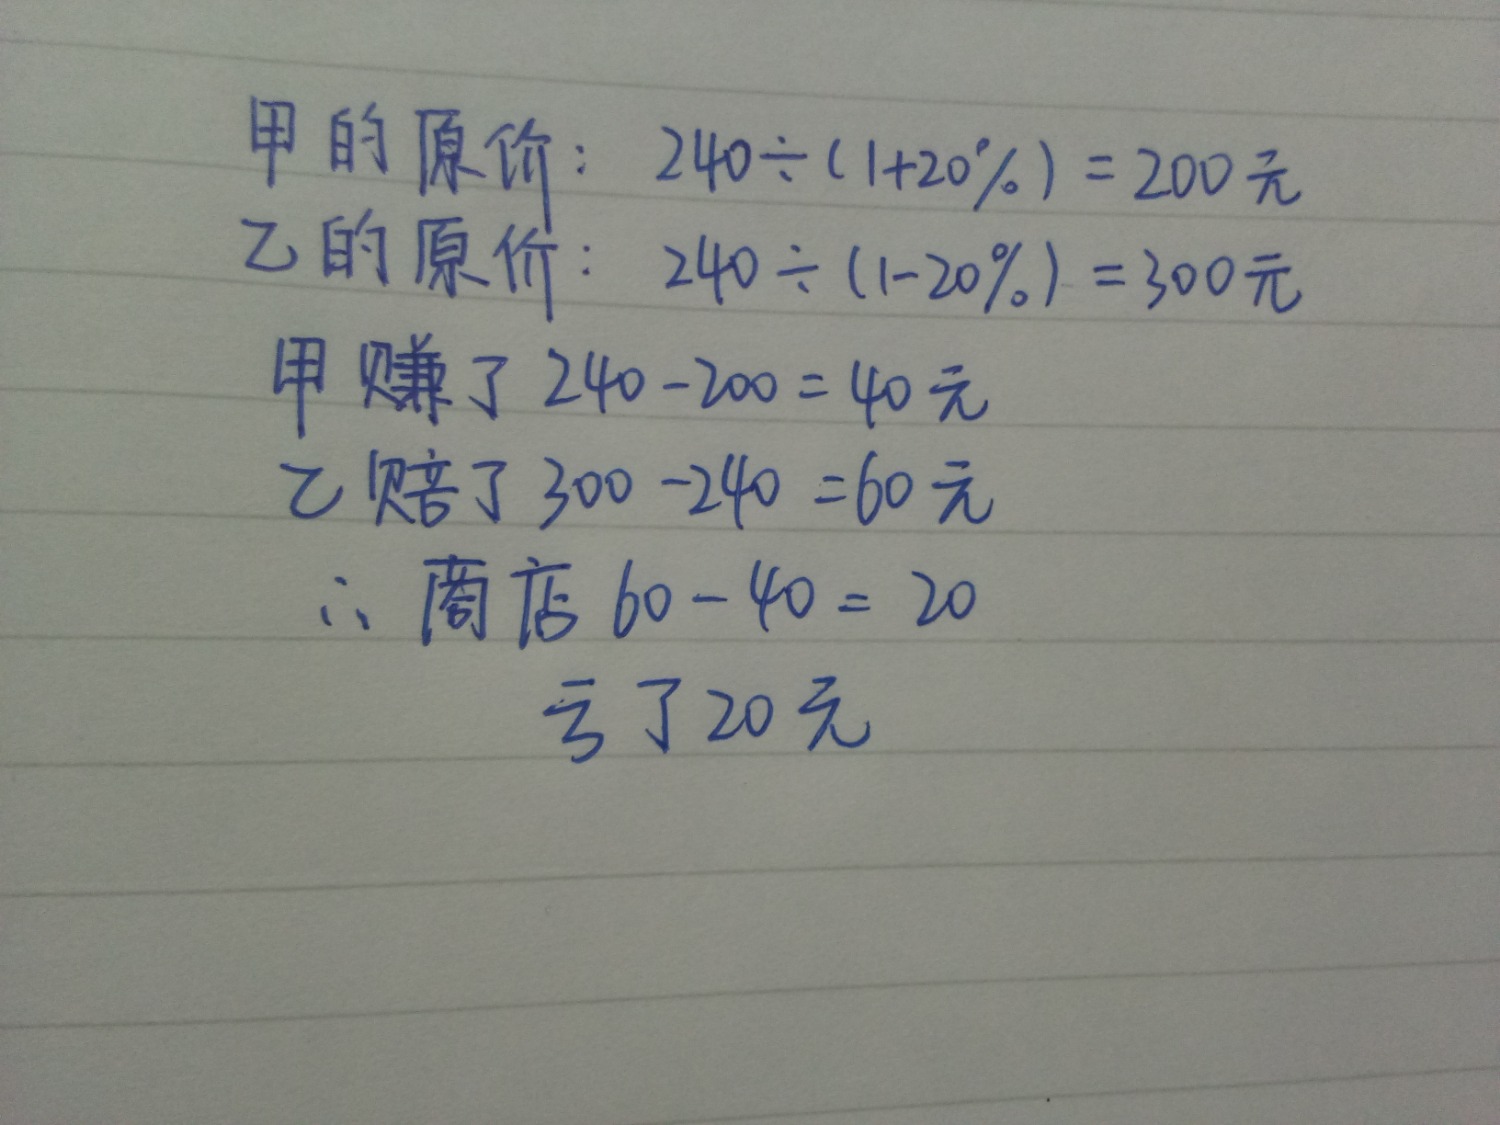 甲的原价: 240÷(1+20%)=200元
乙的原价: 240÷(1-20%)=300元
甲赚了240-200=40元
乙赔了300-240=60元
∴商店60-40=20
亏了20元